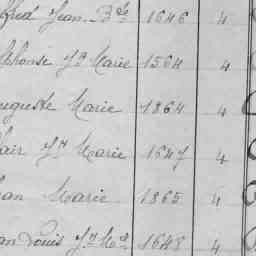 lfred Jean Bte 1646 4
lphonse Jh Marie 1564 4
uguste Marie 1864 4
lair Jh Marie 1647 4
ean Marie 1865 4
ean Louis Jh Me 1648 4